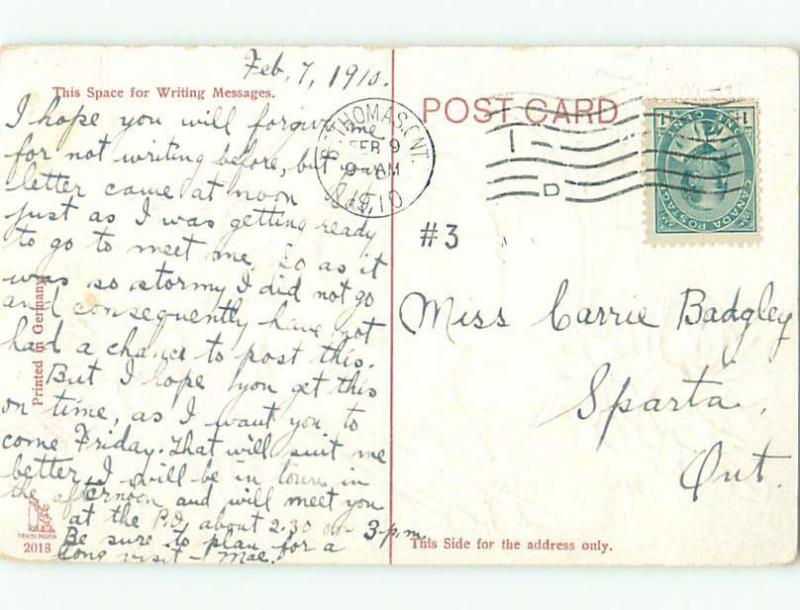 Feb. 7, 1910.
This Space for Writing Messages.
I hope you will forgive me
for not writing before, but your
letter came at noon Sat,
just as I was getting ready
to go to meet me. So as it
was so stormy I did not go
and consequently have not
had a chance to post this.
But I hope you get this
on time, as I want you to
come Friday. That will suit me
better, I will be in town in
the afternoon and will meet you
at the P.O, about 2.30 or 3 p.m.
Be sure to plan for a
long visit - Mae.
Printed in Germany
TRADE MARK
2018
POST CARD
ST. THOMAS, ONT.
FEB 9
9 AM
1910
I
D
CANADA POSTAGE
ONE CENT
1 1
#3
Miss Carrie Badgley
Sparta,
Ont.
This Side for the address only.